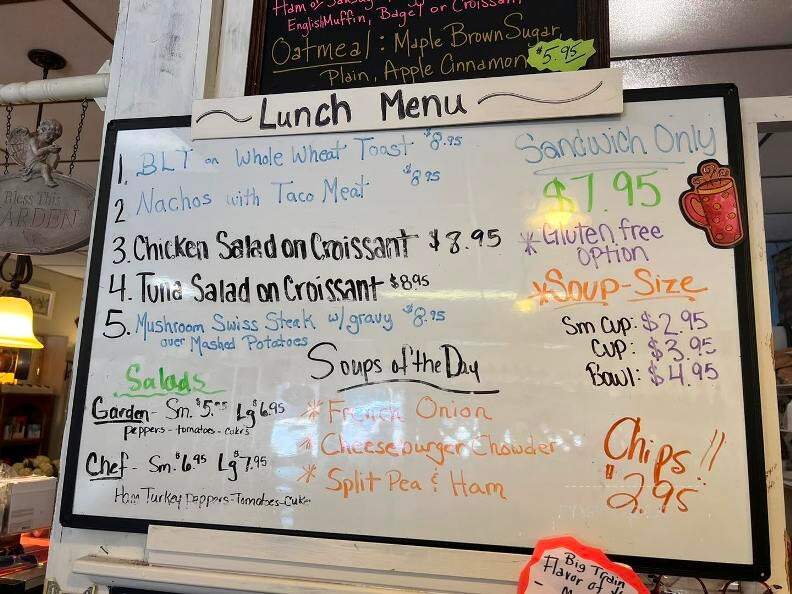 Ham or Sausage
English Muffin, Bagel or Croissant
Oatmeal: Maple Brown Sugar,
Plain, Apple Cinnamon $5.95
Lunch Menu
1. BLT on Whole Wheat Toast $8.95
2 Nachos with Taco Meat $8.95
3. Chicken Salad on Croissant $8.95
4. Tuna Salad on Croissant $8.95
5. Mushroom Swiss Steak w/gravy $8.95
over Mashed Potatoes
Sandwich Only
$7.95
*Gluten free
option
*Soup-Size
Sm Cup: $2.95
Cup: $3.95
Bowl: $4.95
Soups of the Day
* French Onion
* Cheeseburger Chowder
* Split Pea & Ham
Salads
Garden - Sm. $5.95 Lg $6.95
peppers - tomatoes - cukes
Chef - Sm. $6.95 Lg $7.95
Ham Turkey Peppers-Tomatoes-Cuke
Chips!!
$2.95
Bless This
GARDEN
Big Train
Flavor of